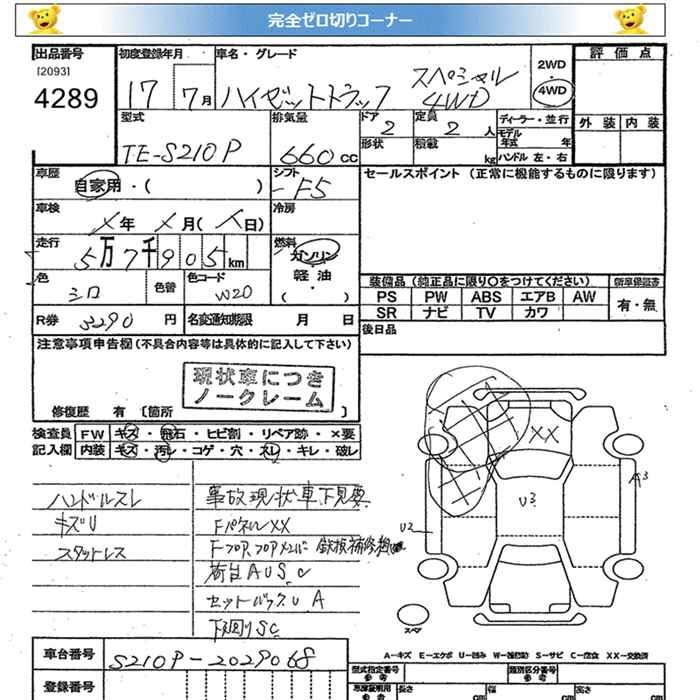 完全ゼロ切りコーナー
出品番号
[2093]
4289
初度登録年月
17 7月
車名・グレード
ハイゼットトラック スペシャル 4WD
2WD
4WD
評価点
外装 内装
型式
TE-S210P
排気量
660cc
ドア
2
形状
定員
2人
積載
kg
ディーラー・並行
モデル
年式 年
ハンドル 左・右
車歴
自家用・( )
シフト
F5
セールスポイント (正常に機能するものに限ります)
車検
メ年 メ月(メ日)
冷房
走行
5万7千905km
燃料
ガソリン
軽油
・( )
色
シロ
色替
色コード
W20
装備品(純正品に限り○をつけてください)
新車保証書
PS PW ABS エアB AW
SR ナビ TV カワ
有・無
R券 3290 円
名変通知期限 月 日
後日品
注意事項申告欄(不具合内容等は具体的に記入して下さい)
現状車につき
ノークレーム
修復歴 有 [箇所 ]
検査員
記入欄
FW キズ・飛石・ヒビ割・リペア跡・×要
内装 キズ・汚レ・コゲ・穴・スレ・キレ・破レ
ハンドルスレ
キズU
スタットレス
事故現状車下見要
FパネルXX
Fフロア、フロアメンバー 鉄板補修
荷台AUSC
セットバックUA
下廻りSC
XX
U3
A3
U2
スペア
A—キズ E—エクボ U—凹み W—補修跡 S—サビ C—腐食 XX—交換済
車台番号
S210P-2029068
登録番号
型式指定番号
参考
類別区分番号
参考
長さ cm
幅 cm
高さ cm